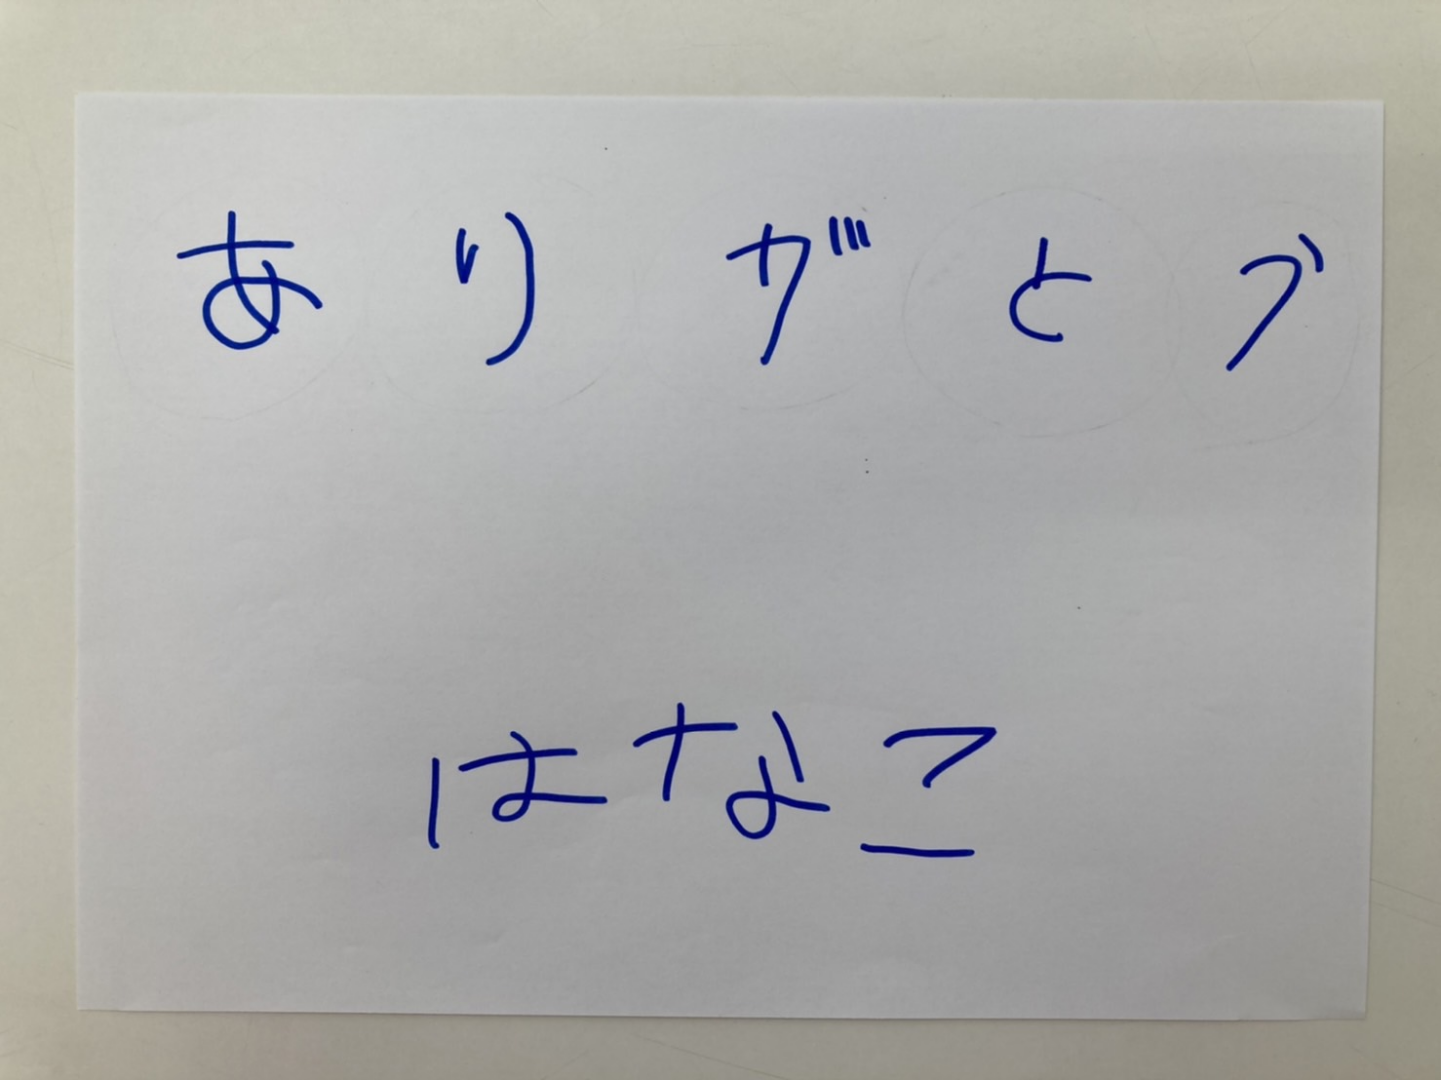 ありがとう
はなこ